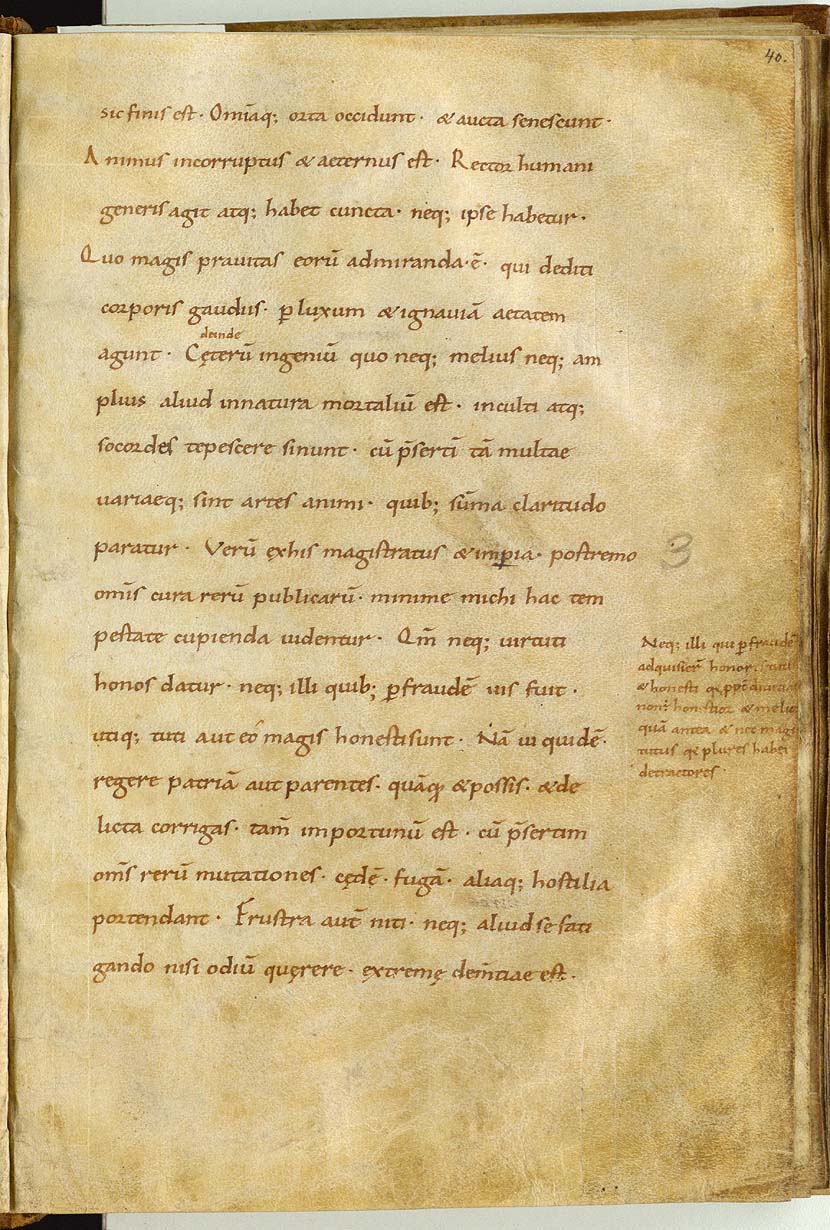 40.
sic finis est · Omīaq; orta occidunt · & aucta senescunt ·
Animus incorruptus & aeternus est · Rector humani
generis agit atq; habet cuncta · neq; ipse habetur ·
Quo magis prauitas eorū admiranda · ē · qui dediti
corporis gaudiis · ꝑ luxum & ignauiā aetatem
deinde
agunt · Cęterū ingeniū quo neq; melius neq; am
plius aliud innatura mortaliū est · inculti atq;
socordes tepescere sinunt · cū p̄sertī tā multae
uariaeq; sint artes animi · quib; sūma claritudo
paratur · Verū ęxhis magistratus & imꝑia · postremo
om̄is cura rerū publicarū · minime michi hac tem
pestate cupienda uidentur · Qm̄ neq; uirtuti
honos datur · neq; illi quib; ꝑ fraudē uis fuit ·
utiq; tuti aut eo magis honesti sunt · Nā ui quidē ·
regere patriā aut parentes · quāqꝫ & possis · & de
licta corrigas · tam̄ importunū est · cū p̄sertim
om̄s rerū mutationes · cędē · fugā · aliaq; hostilia
portendant · Frustra aut̄ niti · neq; aliud se fati
gando nisi odiū quęrere · ęxtremę dem̄tiae est ·
3
Neq; illi qui ꝑ fraudē
adquisier̄ honorē tuti
& honesti
quā antea & nec magis
tutus plures habet
detractores ·